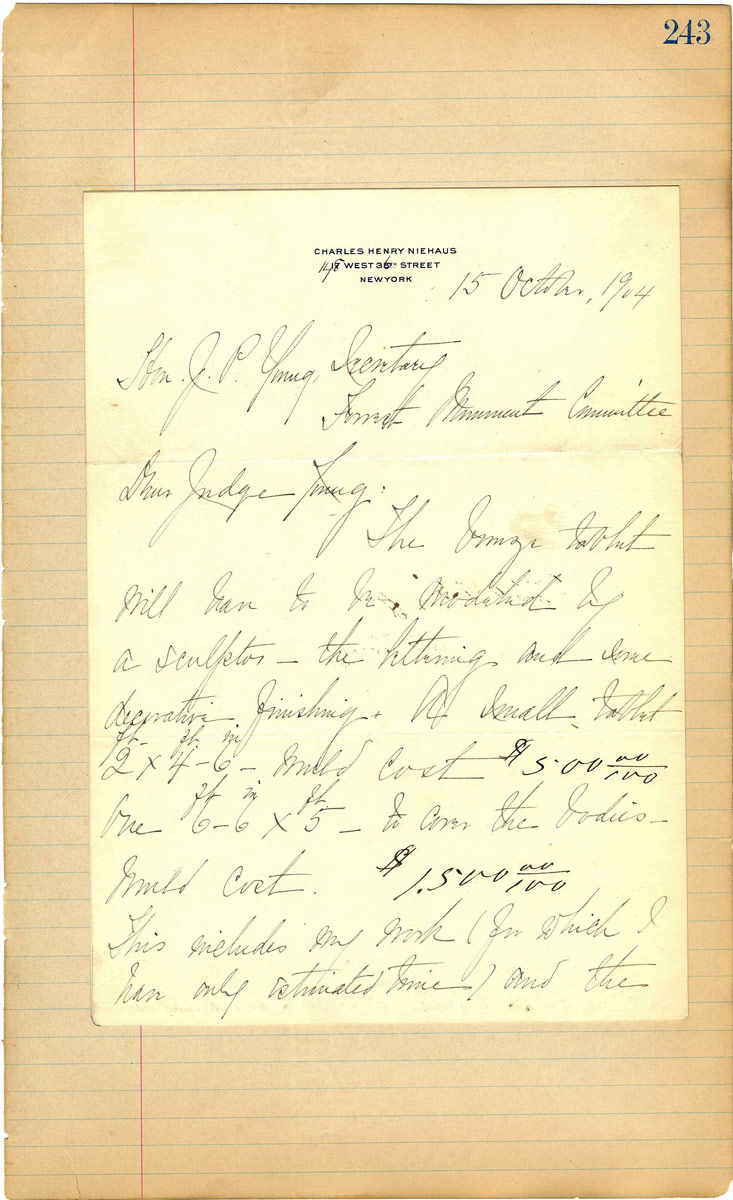 243
CHARLES HENRY NIEHAUS
148 WEST 36TH STREET
NEW YORK
15 October, 1904
Hon. J. P. Young, Secretary
Forrest Monument Committee
Dear Judge Young:
The bronze tablet
will have to be modeled by
a sculptor – the lettering and some
decorative finishing. A small tablet
2 ft x 4 ft - 6 in – would cost $500 00/100
One 6 ft - 6 in x 5 ft – to cover the bodies –
would cost. $1,500 00/100
This includes my work (for which I
have only estimated time) and the